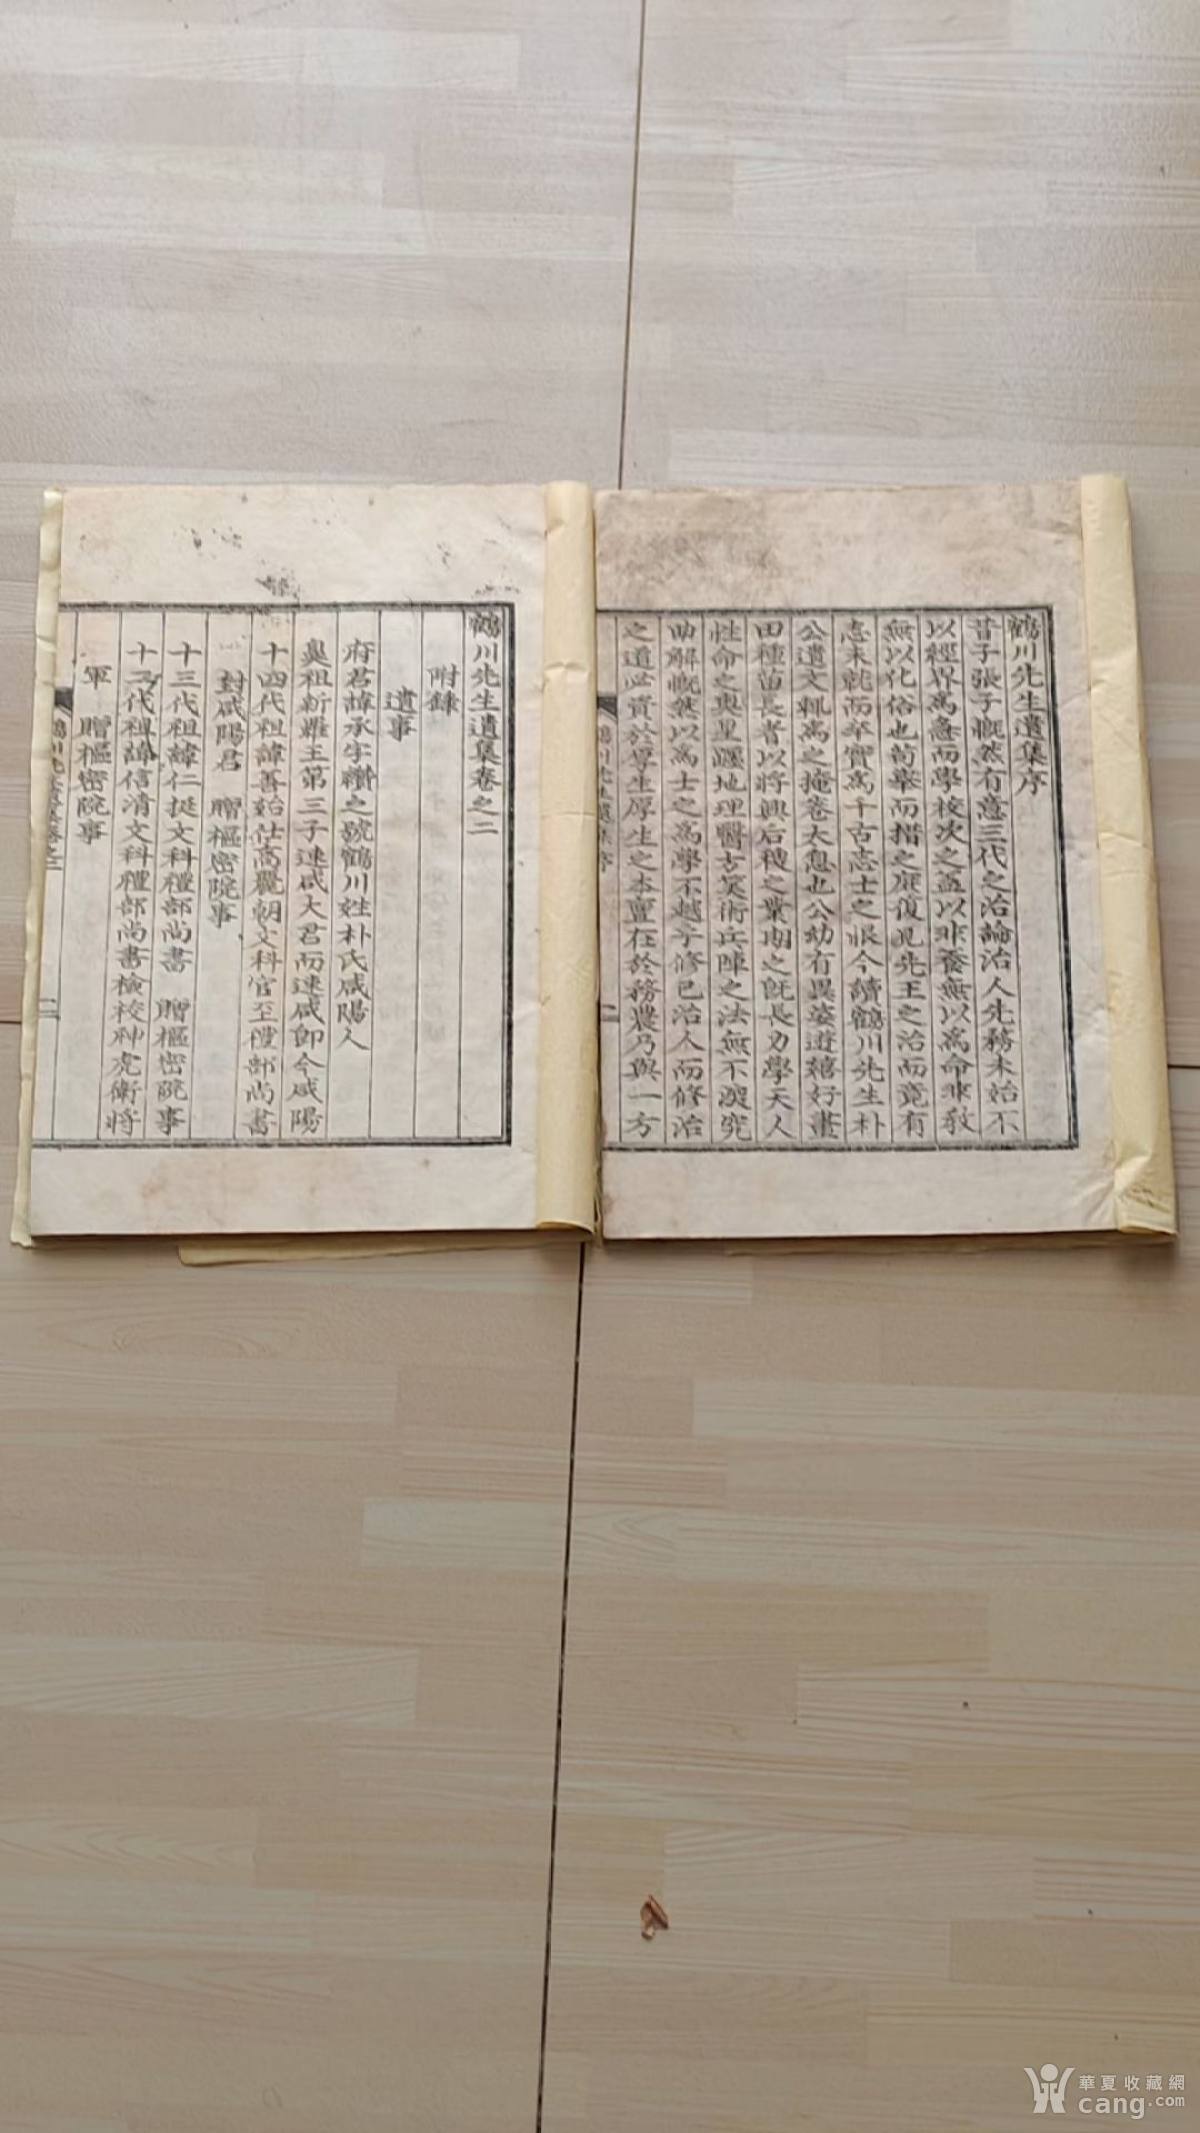 鶴川先生遺集序
昔子張子慨然有意三代之治論治人先務未始不
以經界爲急而學校次之盖以非養無以爲命非敎
無以化俗也苟擧而措之庶復見先王之治而竟有
志未就而卒實爲千古志士之恨今讀鶴川先生朴
公遺文輒爲之掩卷太息也公幼有異姿遊嬉好畫
田種苗長者以將興后稷之業期之旣長力學天人
性命之奧星躔地理醫方筭術兵陣之法無不淹究
曲解慨然以爲士之爲學不越乎修己治人而修治
之道必資於厚生厚生之本亶在於務農乃與一方
鶴川先生遺集序
一
鶴川先生遺集卷之二
附錄
遺事
府君諱承字纘之號鶴川姓朴氏咸陽人
鼻祖新羅王第三子速咸大君而速咸卽今咸陽
十四代祖諱善始仕高麗朝文科官至禮部尚書
封咸陽君 贈樞密院事
十三代祖諱仁挺文科禮部尚書 贈樞密院事
十二代祖諱信淸文科禮部尚書檢校神虎衛將
軍 贈樞密院事
鶴川先生遺集卷之二
一
華夏收藏網
cang.com